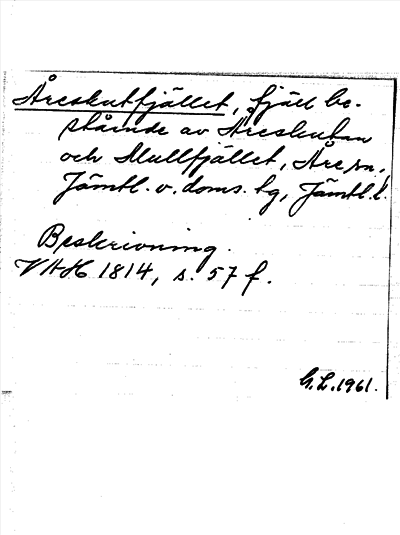 Åreskutfjället, fjäll be-
stående av Åreskutan
och Mullfjället, Åre sn,
Jämtl. v. doms. tg, Jämtl. l.
Beskrivning.
VAH 1814, s. 57 f.
G.L. 1961.